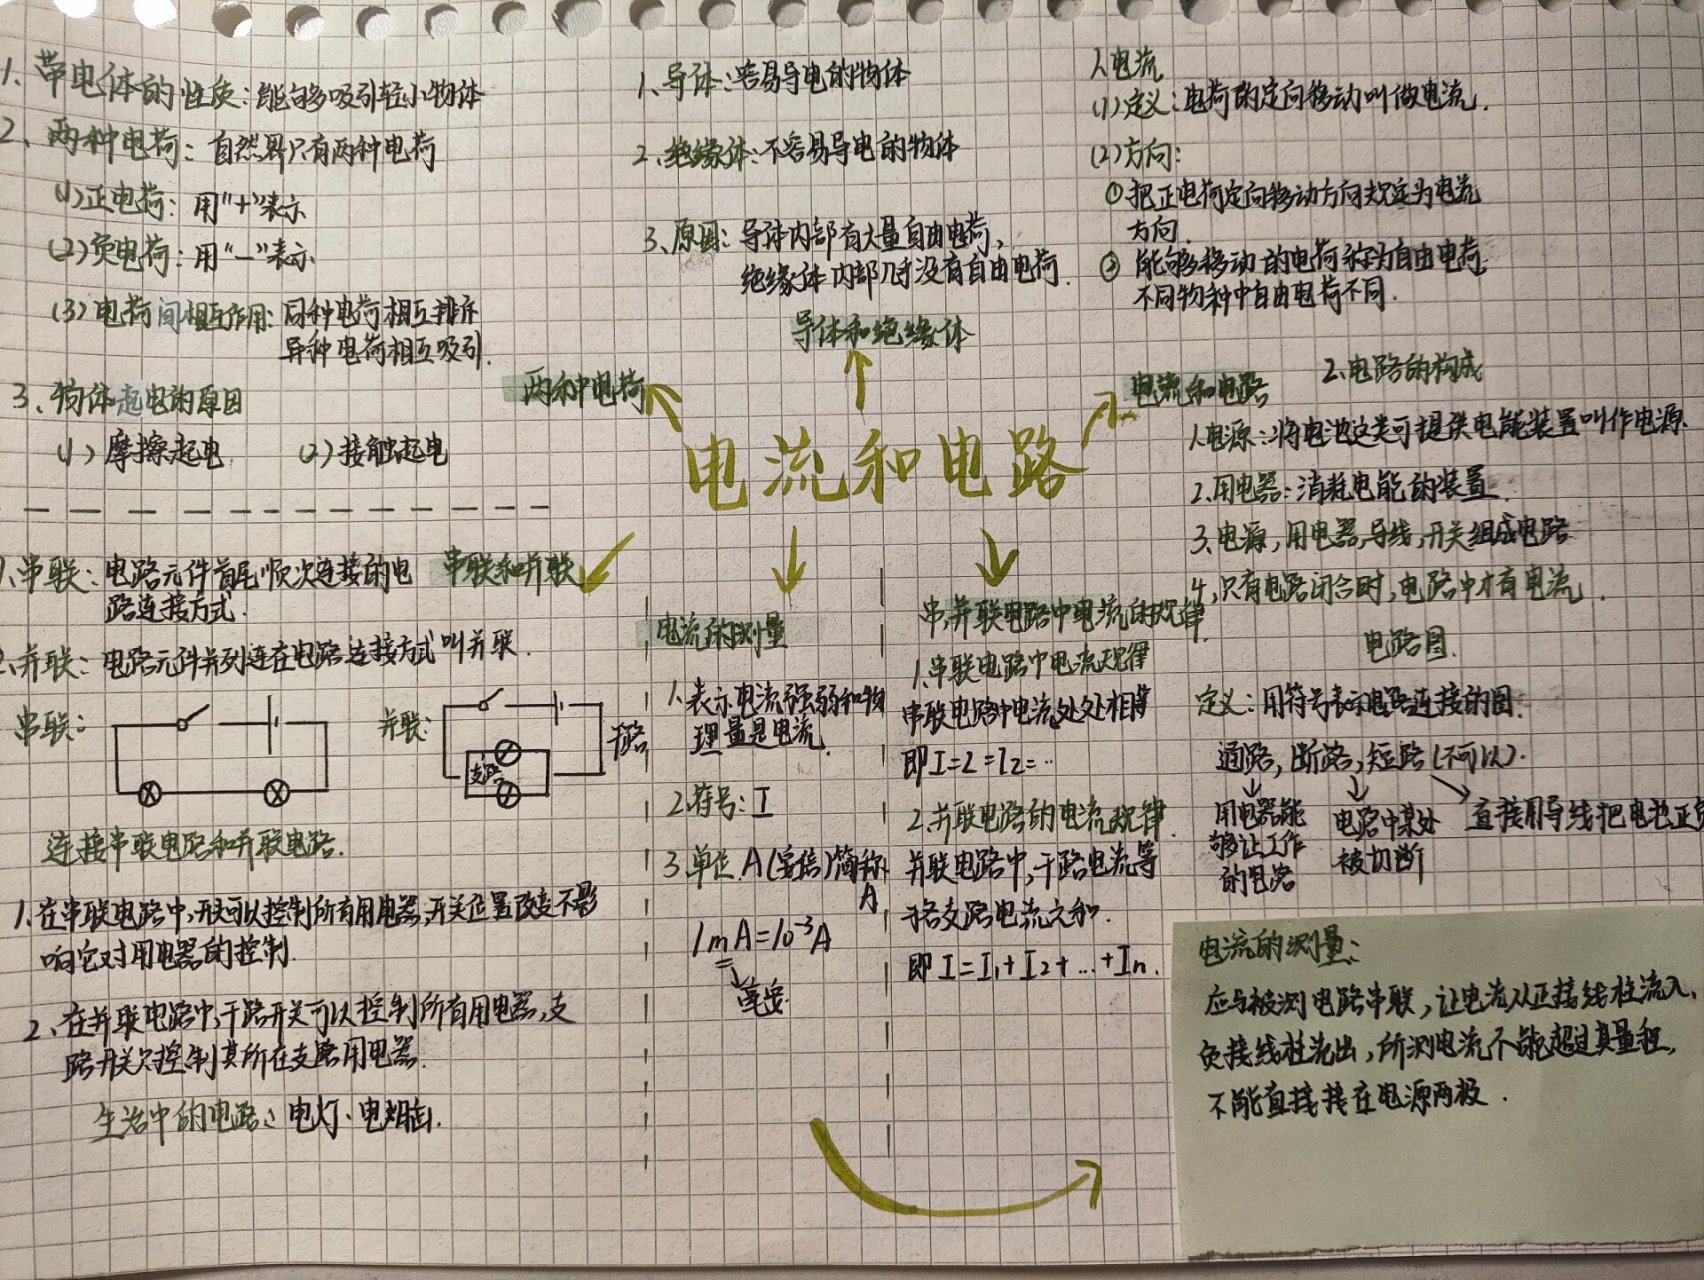 1、带电体的性质：能够吸引轻小物体
2、两种电荷：自然界只有两种电荷
(1)正电荷：用"+"表示
(2)负电荷：用"—"表示
(3)电荷间相互作用：同种电荷相互排斥
异种电荷相互吸引.
3、物体起电的原因
(1)摩擦起电 (2)接触起电
两种电荷
1、导体：容易导电的物体
2、绝缘体：不容易导电的物体
3、原因：导体内部有大量自由电荷、
绝缘体内部几乎没有自由电荷.
导体和绝缘体
1、电流
(1)定义：电荷的定向移动叫做电流.
(2)方向：
①把正电荷定向移动方向规定为电流
方向.
② 能够移动的电荷称为自由电荷
不同物种中自由电荷不同.
电流和电路
2、电路的构成
1、电源：将电池这类可提供电能装置叫作电源.
2、用电器：消耗电能的装置.
3、电源,用电器,导线,开关组成电路
4、只有电路闭合时,电路中才有电流.
电路图.
定义：用符号表示电路连接的图.
通路,断路,短路(不可以).
用电器能
够让工作
的电路
电路中某处
被切断
直接用导线把电池正
电流和电路
1、串联：电路元件首尾顺次连接的电
路连接方式.
串联和并联
2、并联：电路元件并列连在电路连接方式叫并联.
串联：
并联：
干路
支路
连接串联电路和并联电路.
1、在串联电路中,开关可以控制所有用电器,开关位置改变不影
响它对用电器的控制.
2、在并联电路中,干路开关可以控制所有用电器,支
路开关只控制其所在支路用电器.
生活中的电路：电灯、电烟囱.
电流的测量
1、表示电流强弱和物
理量是电流.
2、符号：I
3、单位 A(安倍)简称
A
1mA=10⁻³A
毫安
串,并联电路中电流的规律
1、串联电路中电流规律
串联电路中电流处处相等
即I=2=I2=…
2、并联电路的电流规律.
并联电路中,干路电流等
于各支路电流之和.
即I=I₁+I2+…+In.
电流的测量：
应与被测电路串联,让电流从正接线柱流入、
负接线柱流出,所测电流不能超过其量程,
不能直接接在电源两极.